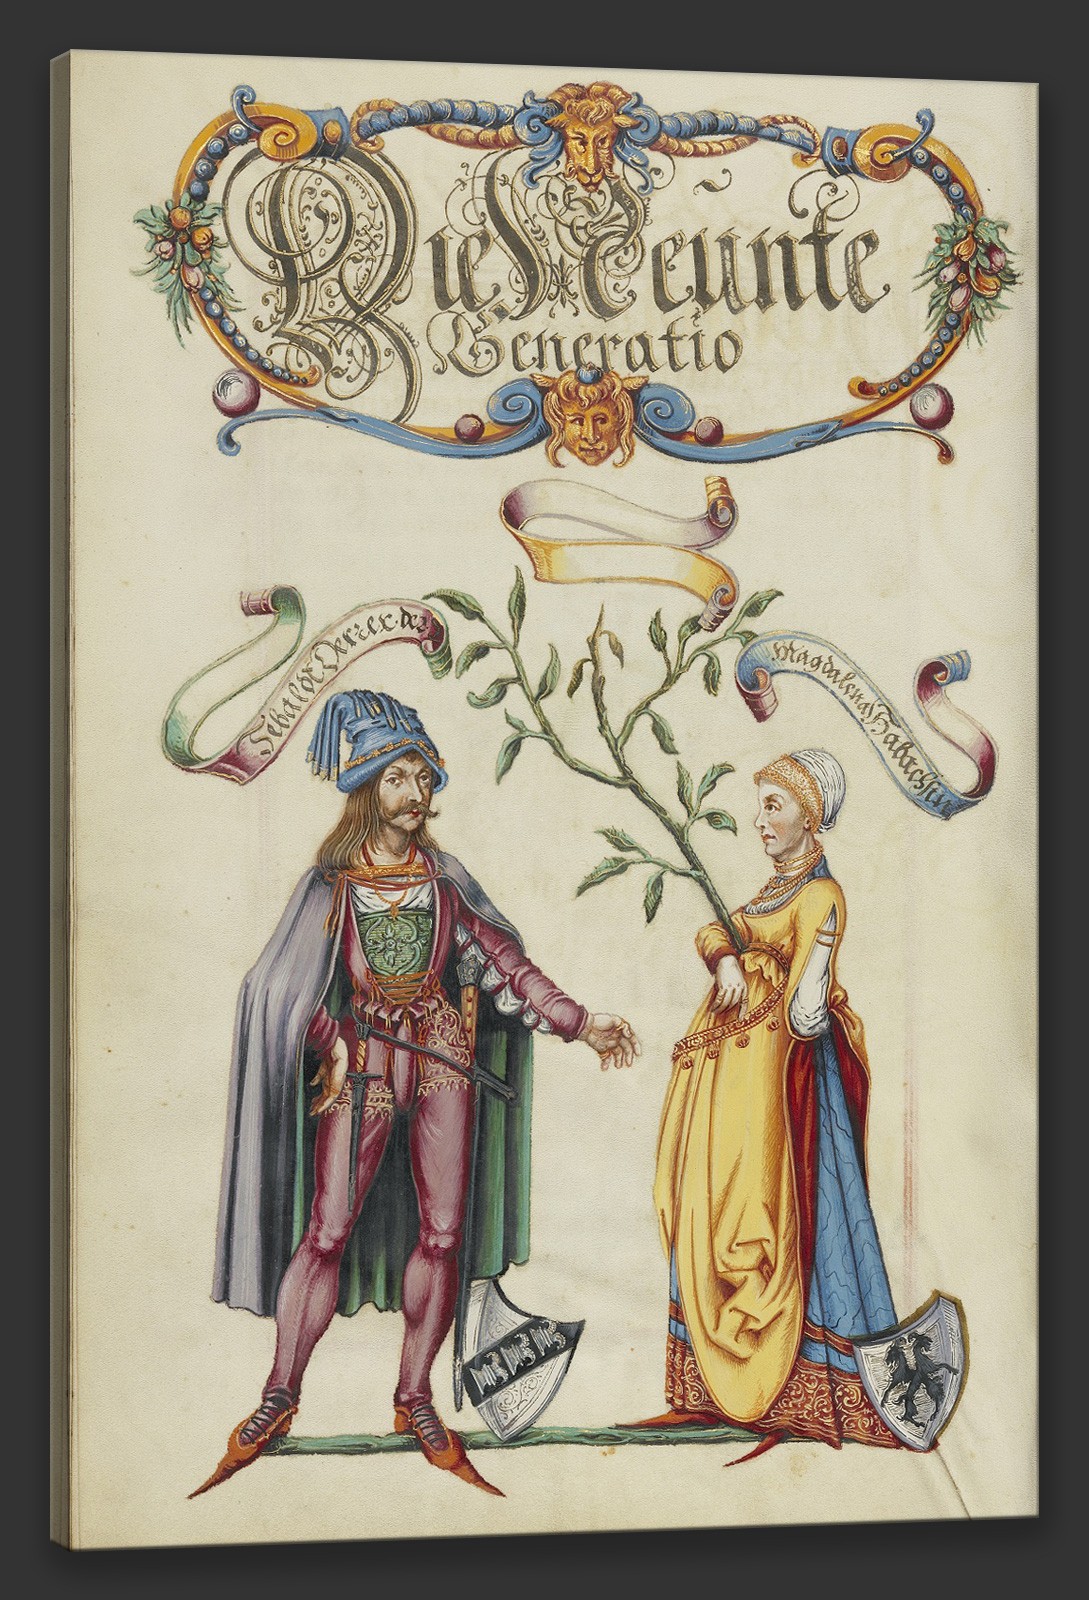 Die Neunte
Generatio
Sebaldt Derrer der
Magdalena Habachsin